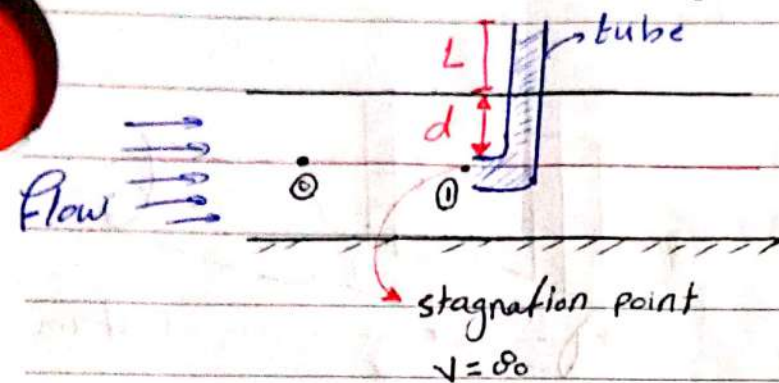 L
tube
d
flow
⓪
①
stagnation point